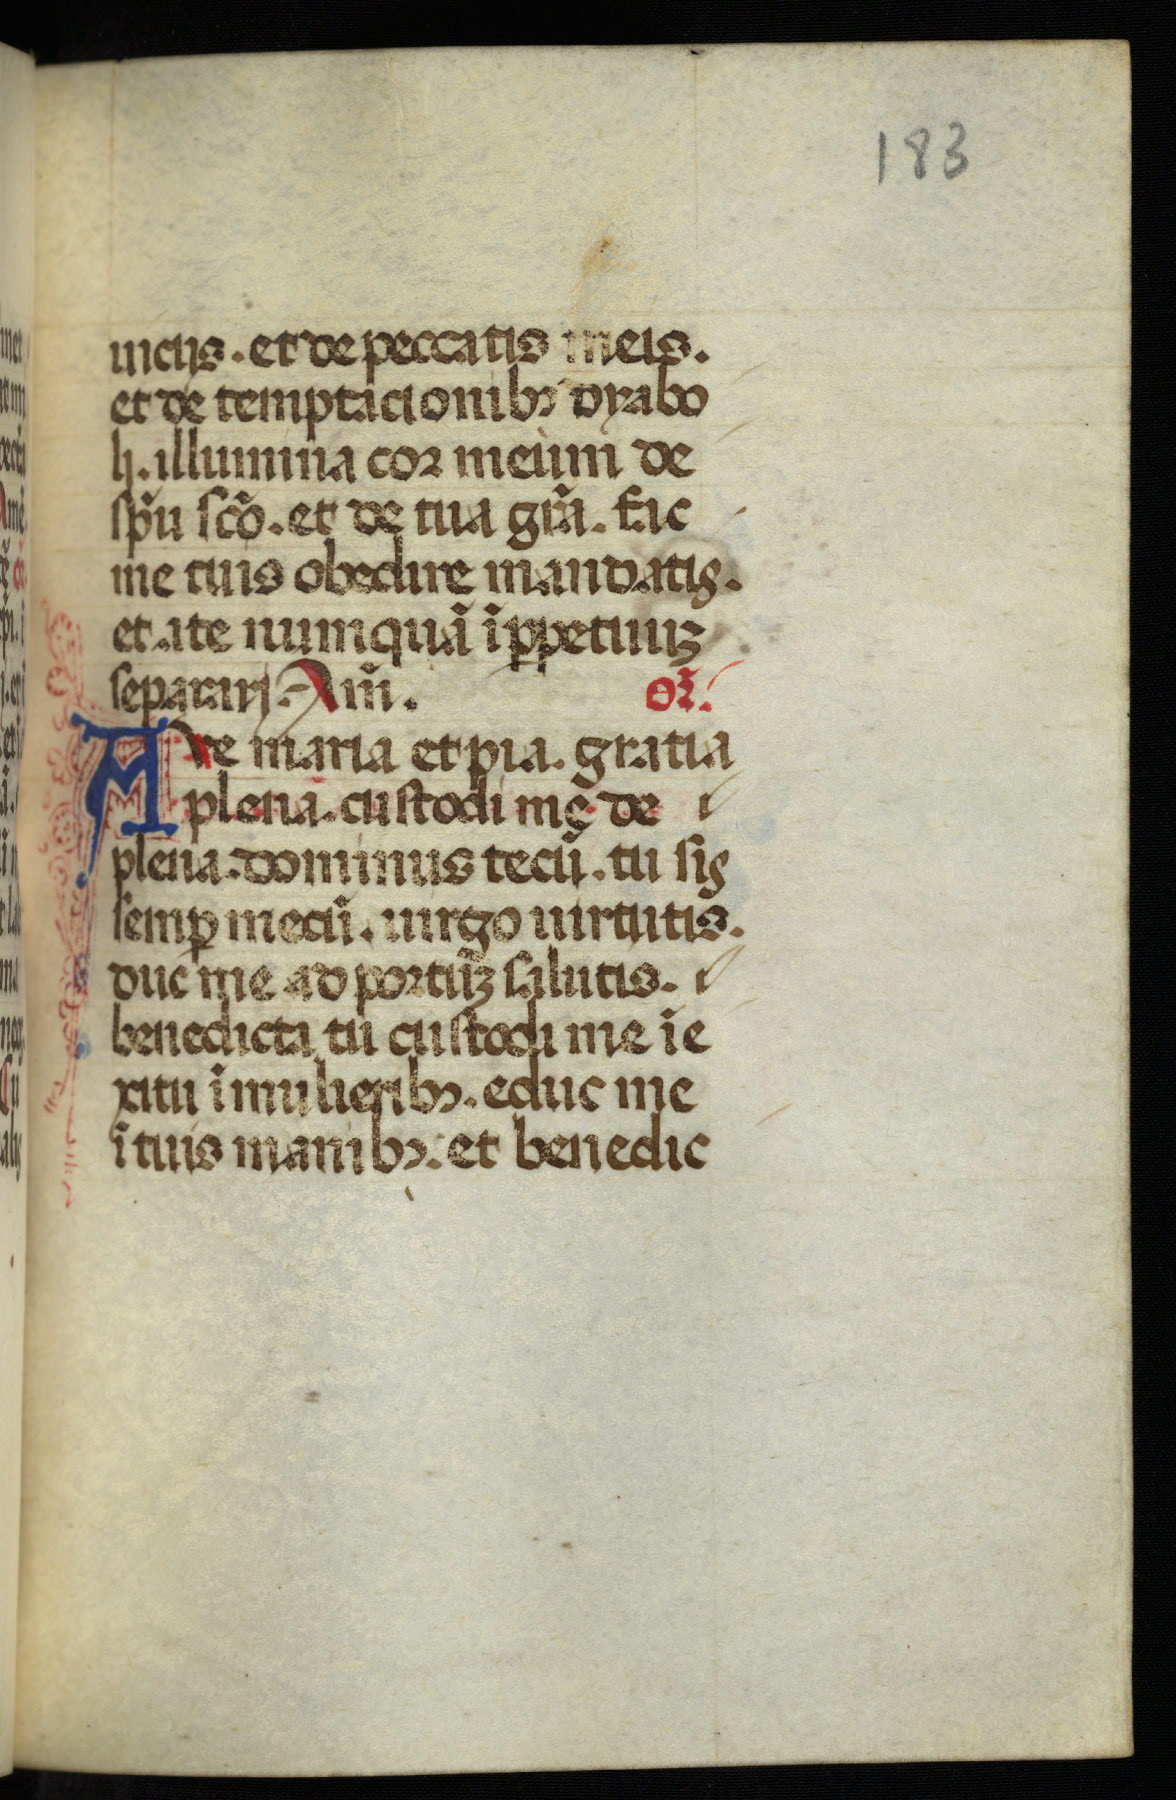 183
uiciis. et de peccatis meis.
et de temptacionibꝫ dyabo
li. illumina cor meum de
sp̃u sc̃o. et de tua gr̃a. fac
me tuis obedire mandatis.
et a te numquã ĩ ꝑpetuuꝫ
separari. Am̃.
or̃.
Aue maria et pia. gratia
plena. custodi me de
plena. dominus tecũ. tu sis
semꝑ mecũ. uirgo uirtutis.
duc me ad portuꝫ salutis.
benedicta tu custodi me ĩ e
xitu ĩ mulieribꝫ. educ me
ĩ tuis manibꝫ. et benedic